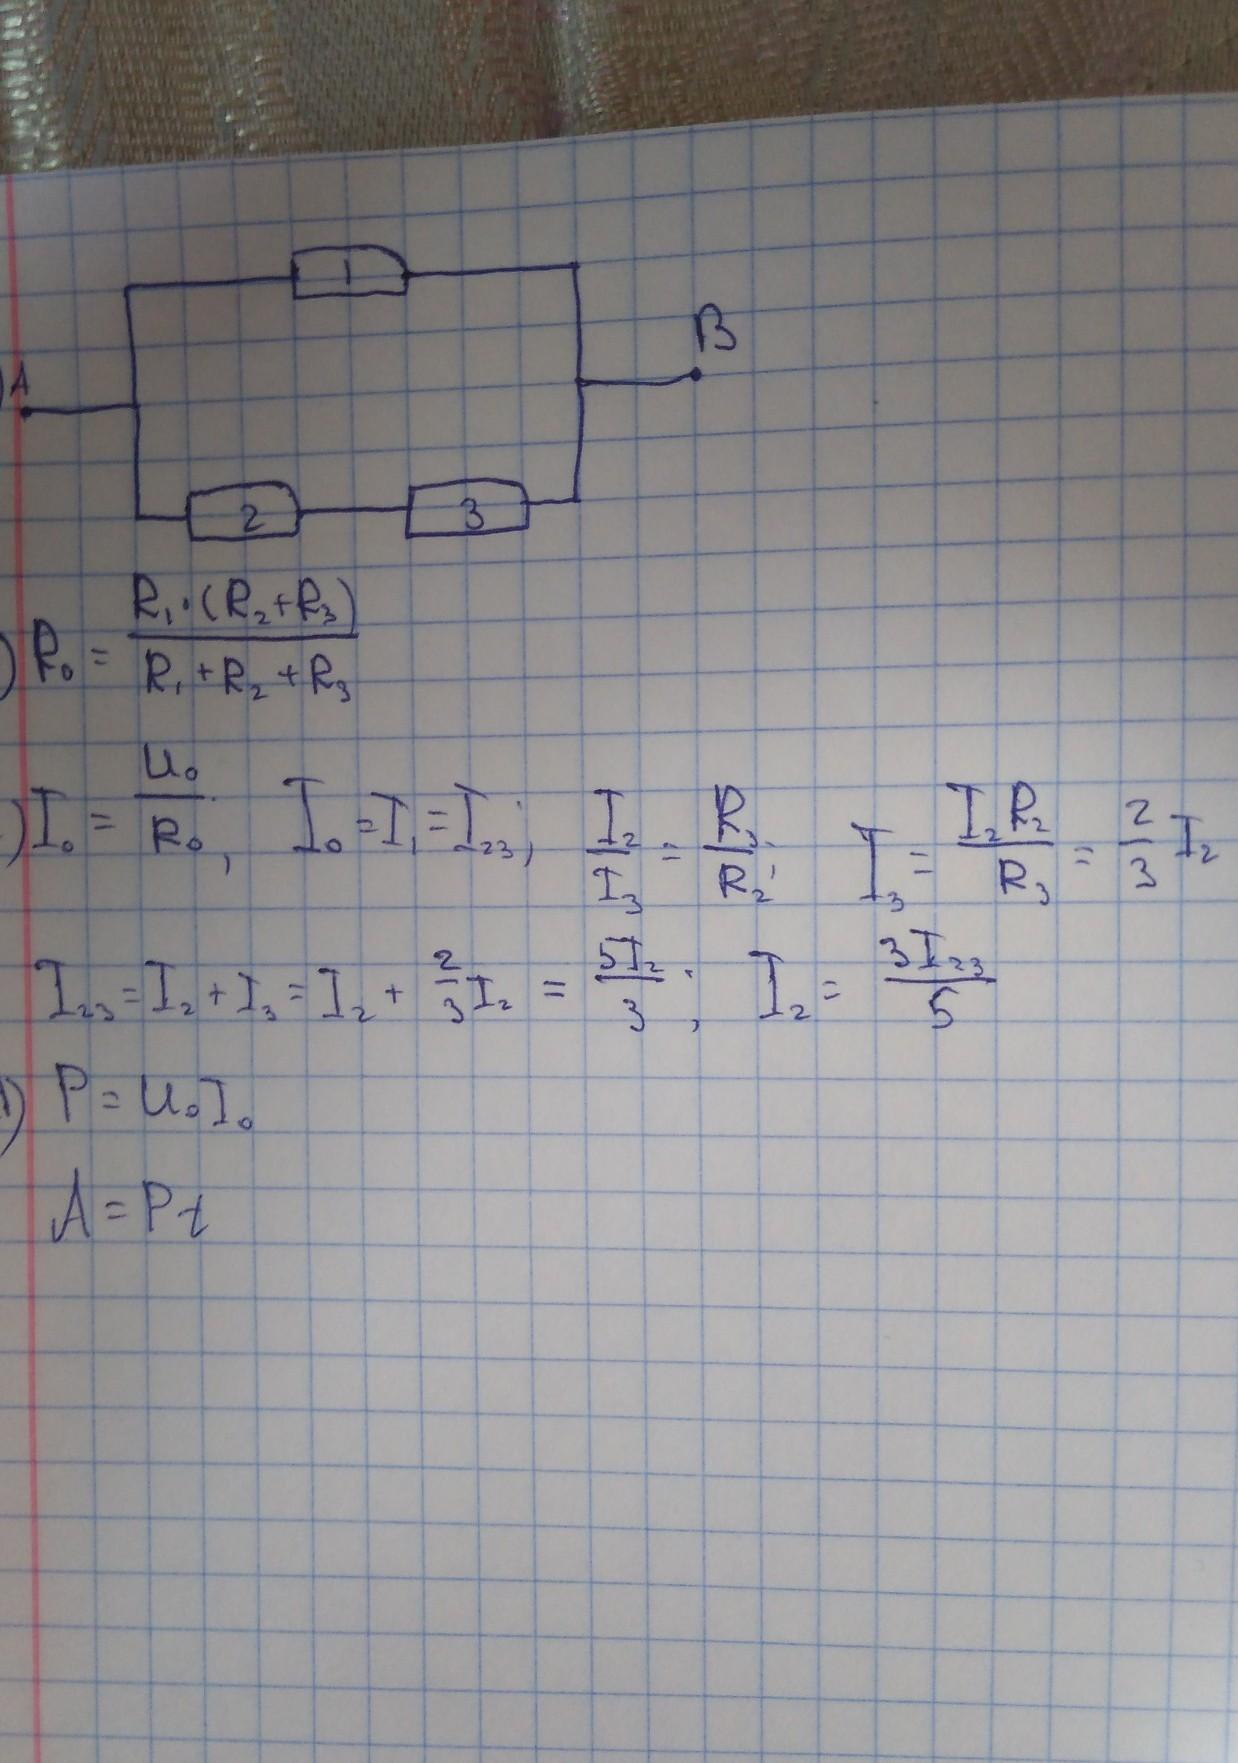 1
A
B
2
3
) R₀ = R₁·(R₂+R₃) / R₁+R₂+R₃
) I₀ = U₀/R₀, I₀=I₁=I₂₃; I₂/I₃ = R₃/R₂; I₃ = I₂R₂/R₃ = 2/3 I₂
I₂₃=I₂+I₃=I₂+ 2/3 I₂ = 5I₂/3; I₂= 3I₂₃/5
) P=U₀I₀
A=Pt